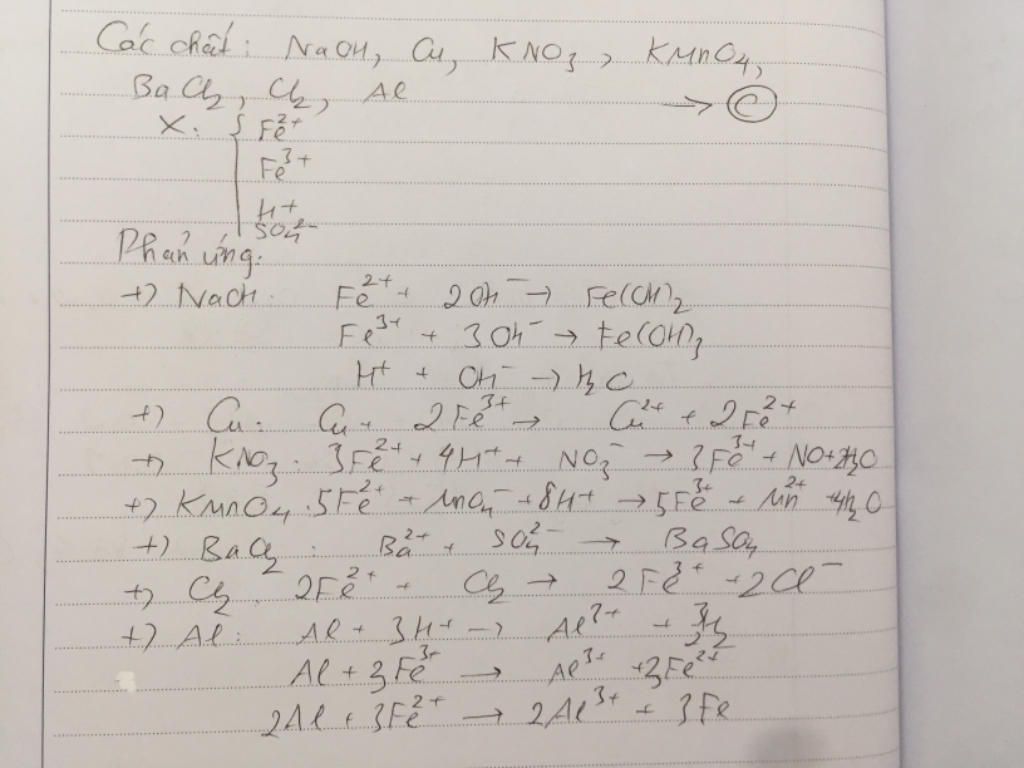 Các chất: NaOH, Cu, KNO₃, KMnO₄,
BaCl₂, Cl₂, Al → C
X: { Fe²⁺
Fe³⁺
H⁺
SO₄²⁻
Phản ứng:
+) NaOH: Fe²⁺ + 2OH⁻ → Fe(OH)₂
Fe³⁺ + 3OH⁻ → Fe(OH)₃
H⁺ + OH⁻ → H₂O
+) Cu: Cu + 2Fe³⁺ → Cu²⁺ + 2Fe²⁺
+) KNO₃: 3Fe²⁺ + 4H⁺ + NO₃⁻ → 3Fe³⁺ + NO + 2H₂O
+) KMnO₄: 5Fe²⁺ + MnO₄⁻ + 8H⁺ → 5Fe³⁺ + Mn²⁺ + 4H₂O
+) BaCl₂: Ba²⁺ + SO₄²⁻ → BaSO₄
+) Cl₂: 2Fe²⁺ + Cl₂ → 2Fe³⁺ + 2Cl⁻
+) Al: Al + 3H⁺ → Al³⁺ + 3/2 H₂
Al + 3Fe³⁺ → Al³⁺ + 3Fe²⁺
2Al + 3Fe²⁺ → 2Al³⁺ + 3Fe